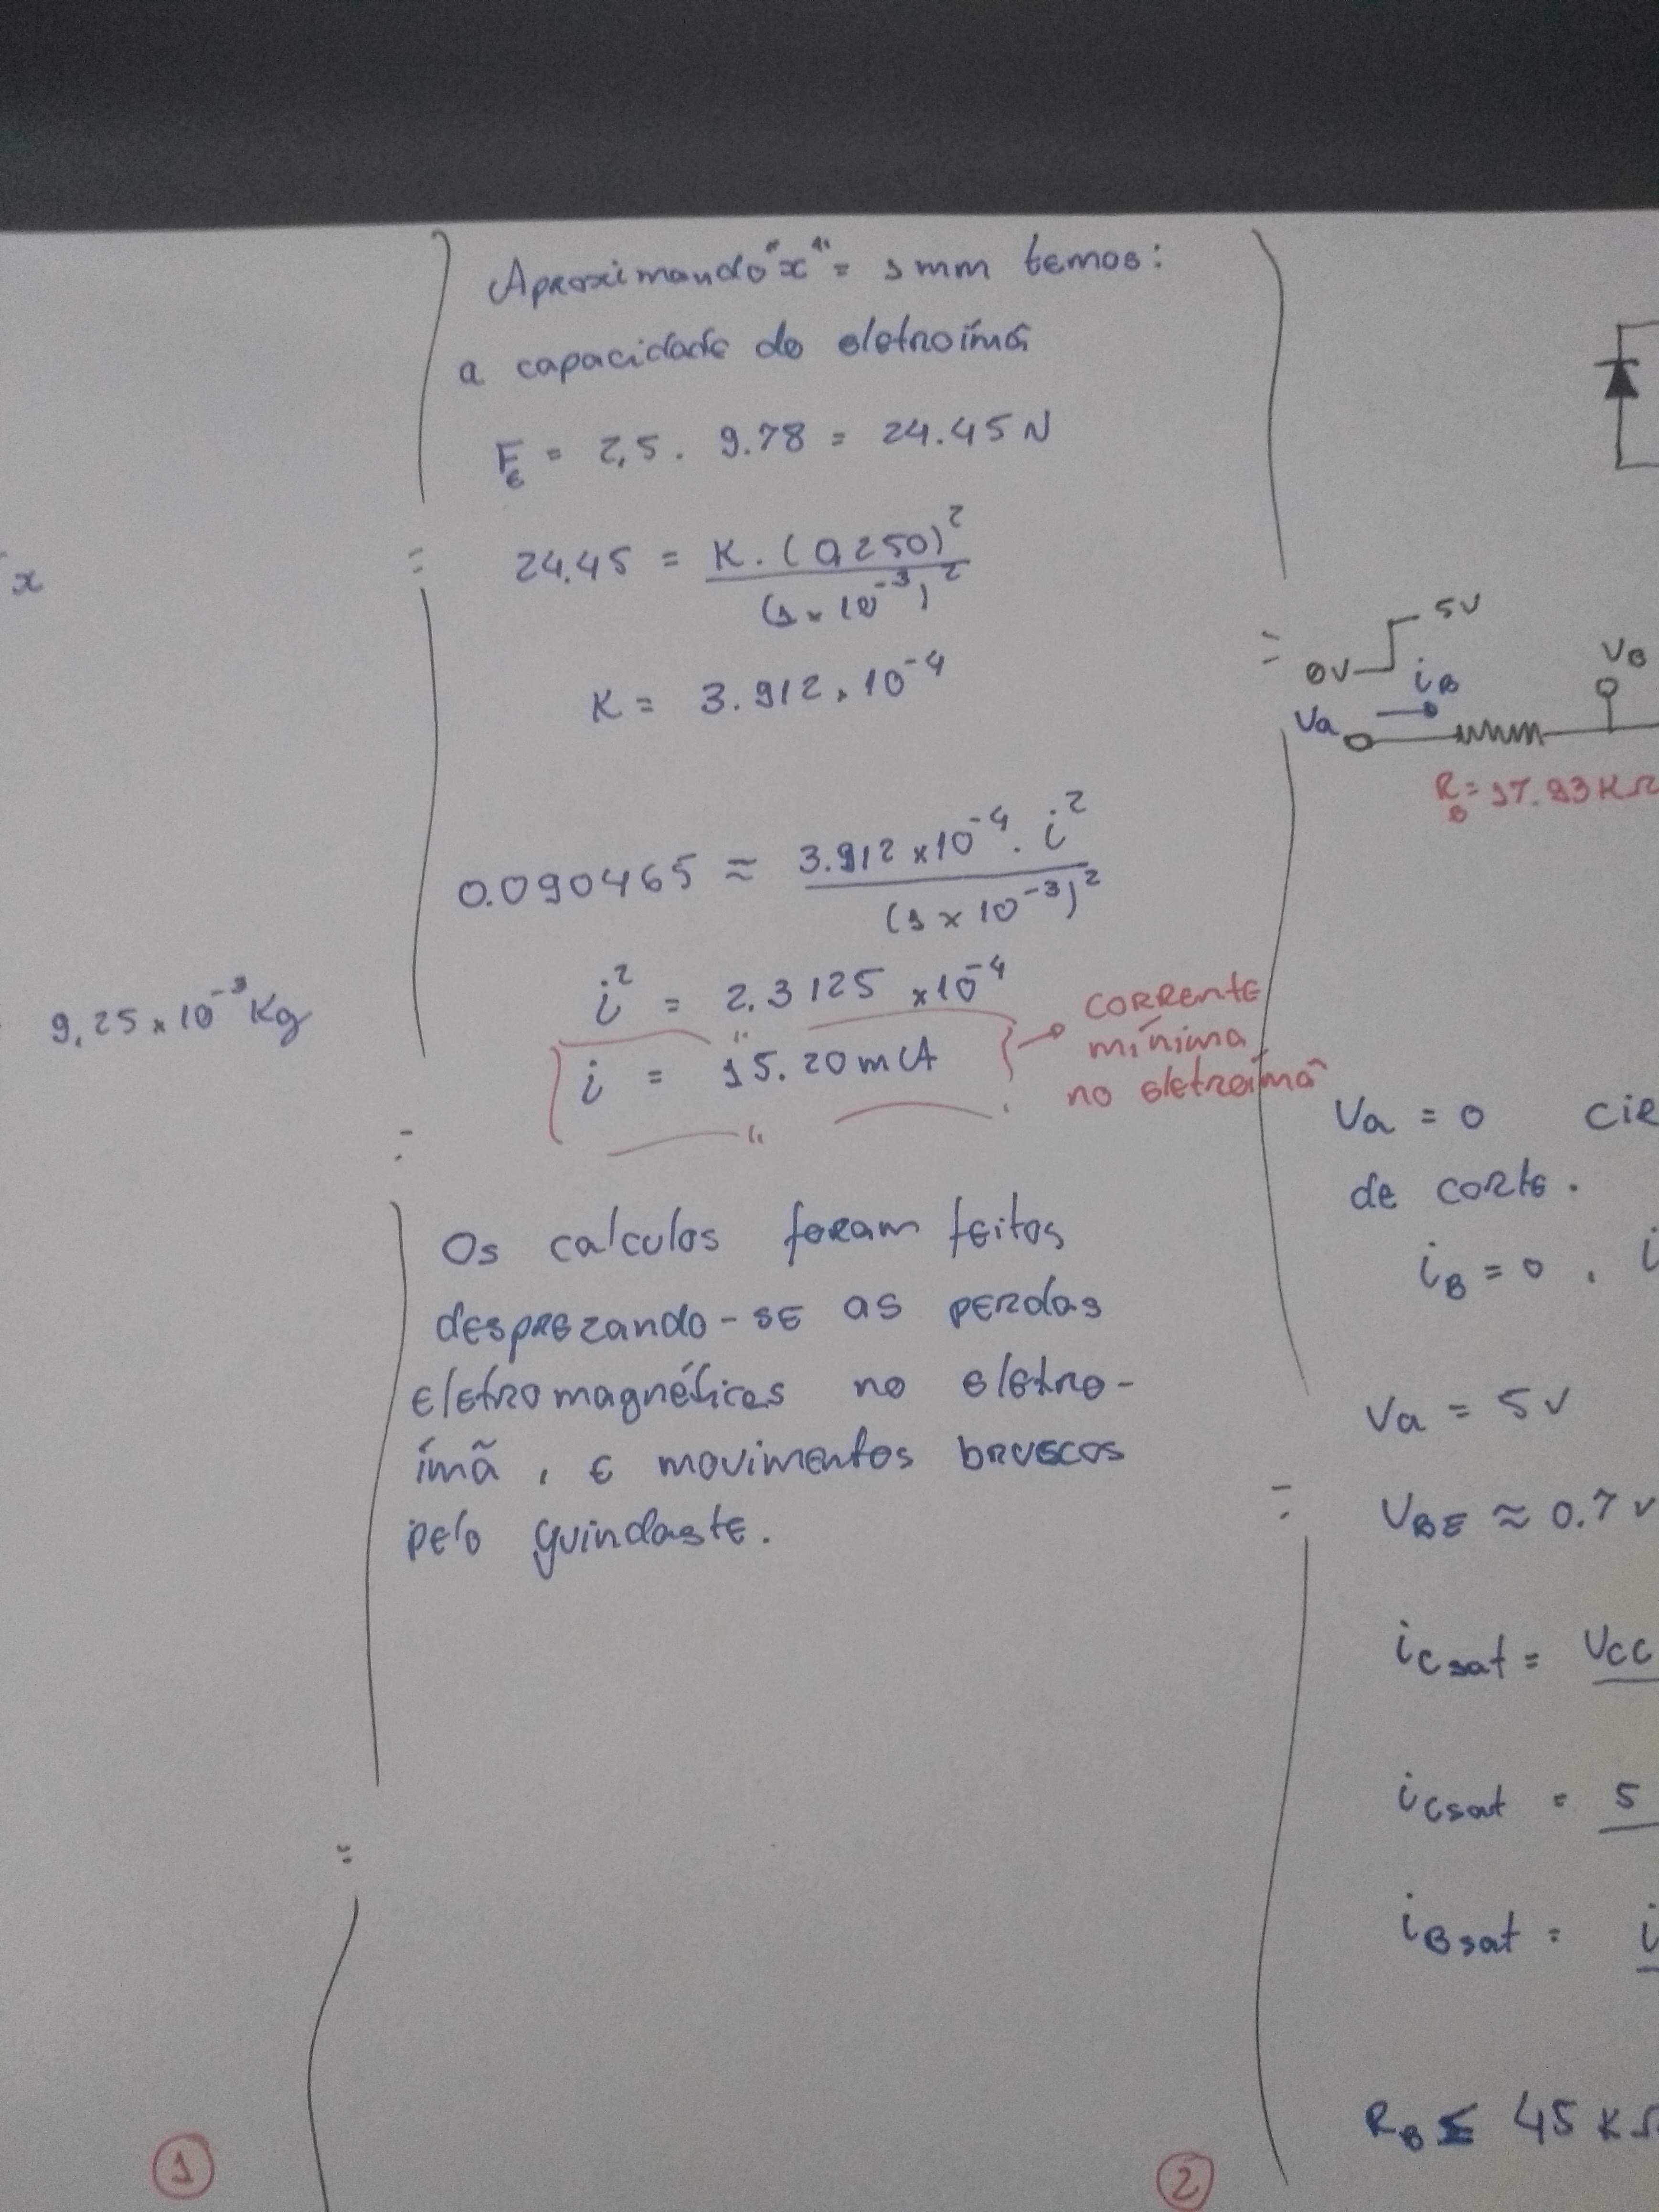 x
9,25 x 10⁻³ Kg
1
Aproximando "x" = 1 mm temos:
a capacidade do eletroímã
Fe = 2,5 . 9.78 = 24.45 N
24.45 = K . (0,250)² / (1 x 10⁻³)²
K = 3.912 x 10⁻⁴
0.090465 ≈ 3.912 x 10⁻⁴ . i² / (1 x 10⁻³)²
i² = 2.3125 x 10⁻⁴
i = 15.20 mA
corrente
mínima
no eletroímã
Os calculos foram feitos
desprezando-se as perdas
eletromagnéticas no eletro-
ímã, e movimentos bruscos
pelo guindaste.
2
5V
0V
iB
VB
Va
RB = 17.93 KΩ
Va = 0 cir
de corte.
iB = 0, i
Va = 5V
VBE ≈ 0.7 V
iCsat = VCC
iCsat = 5
iBsat = i
RB ≤ 45 KΩ